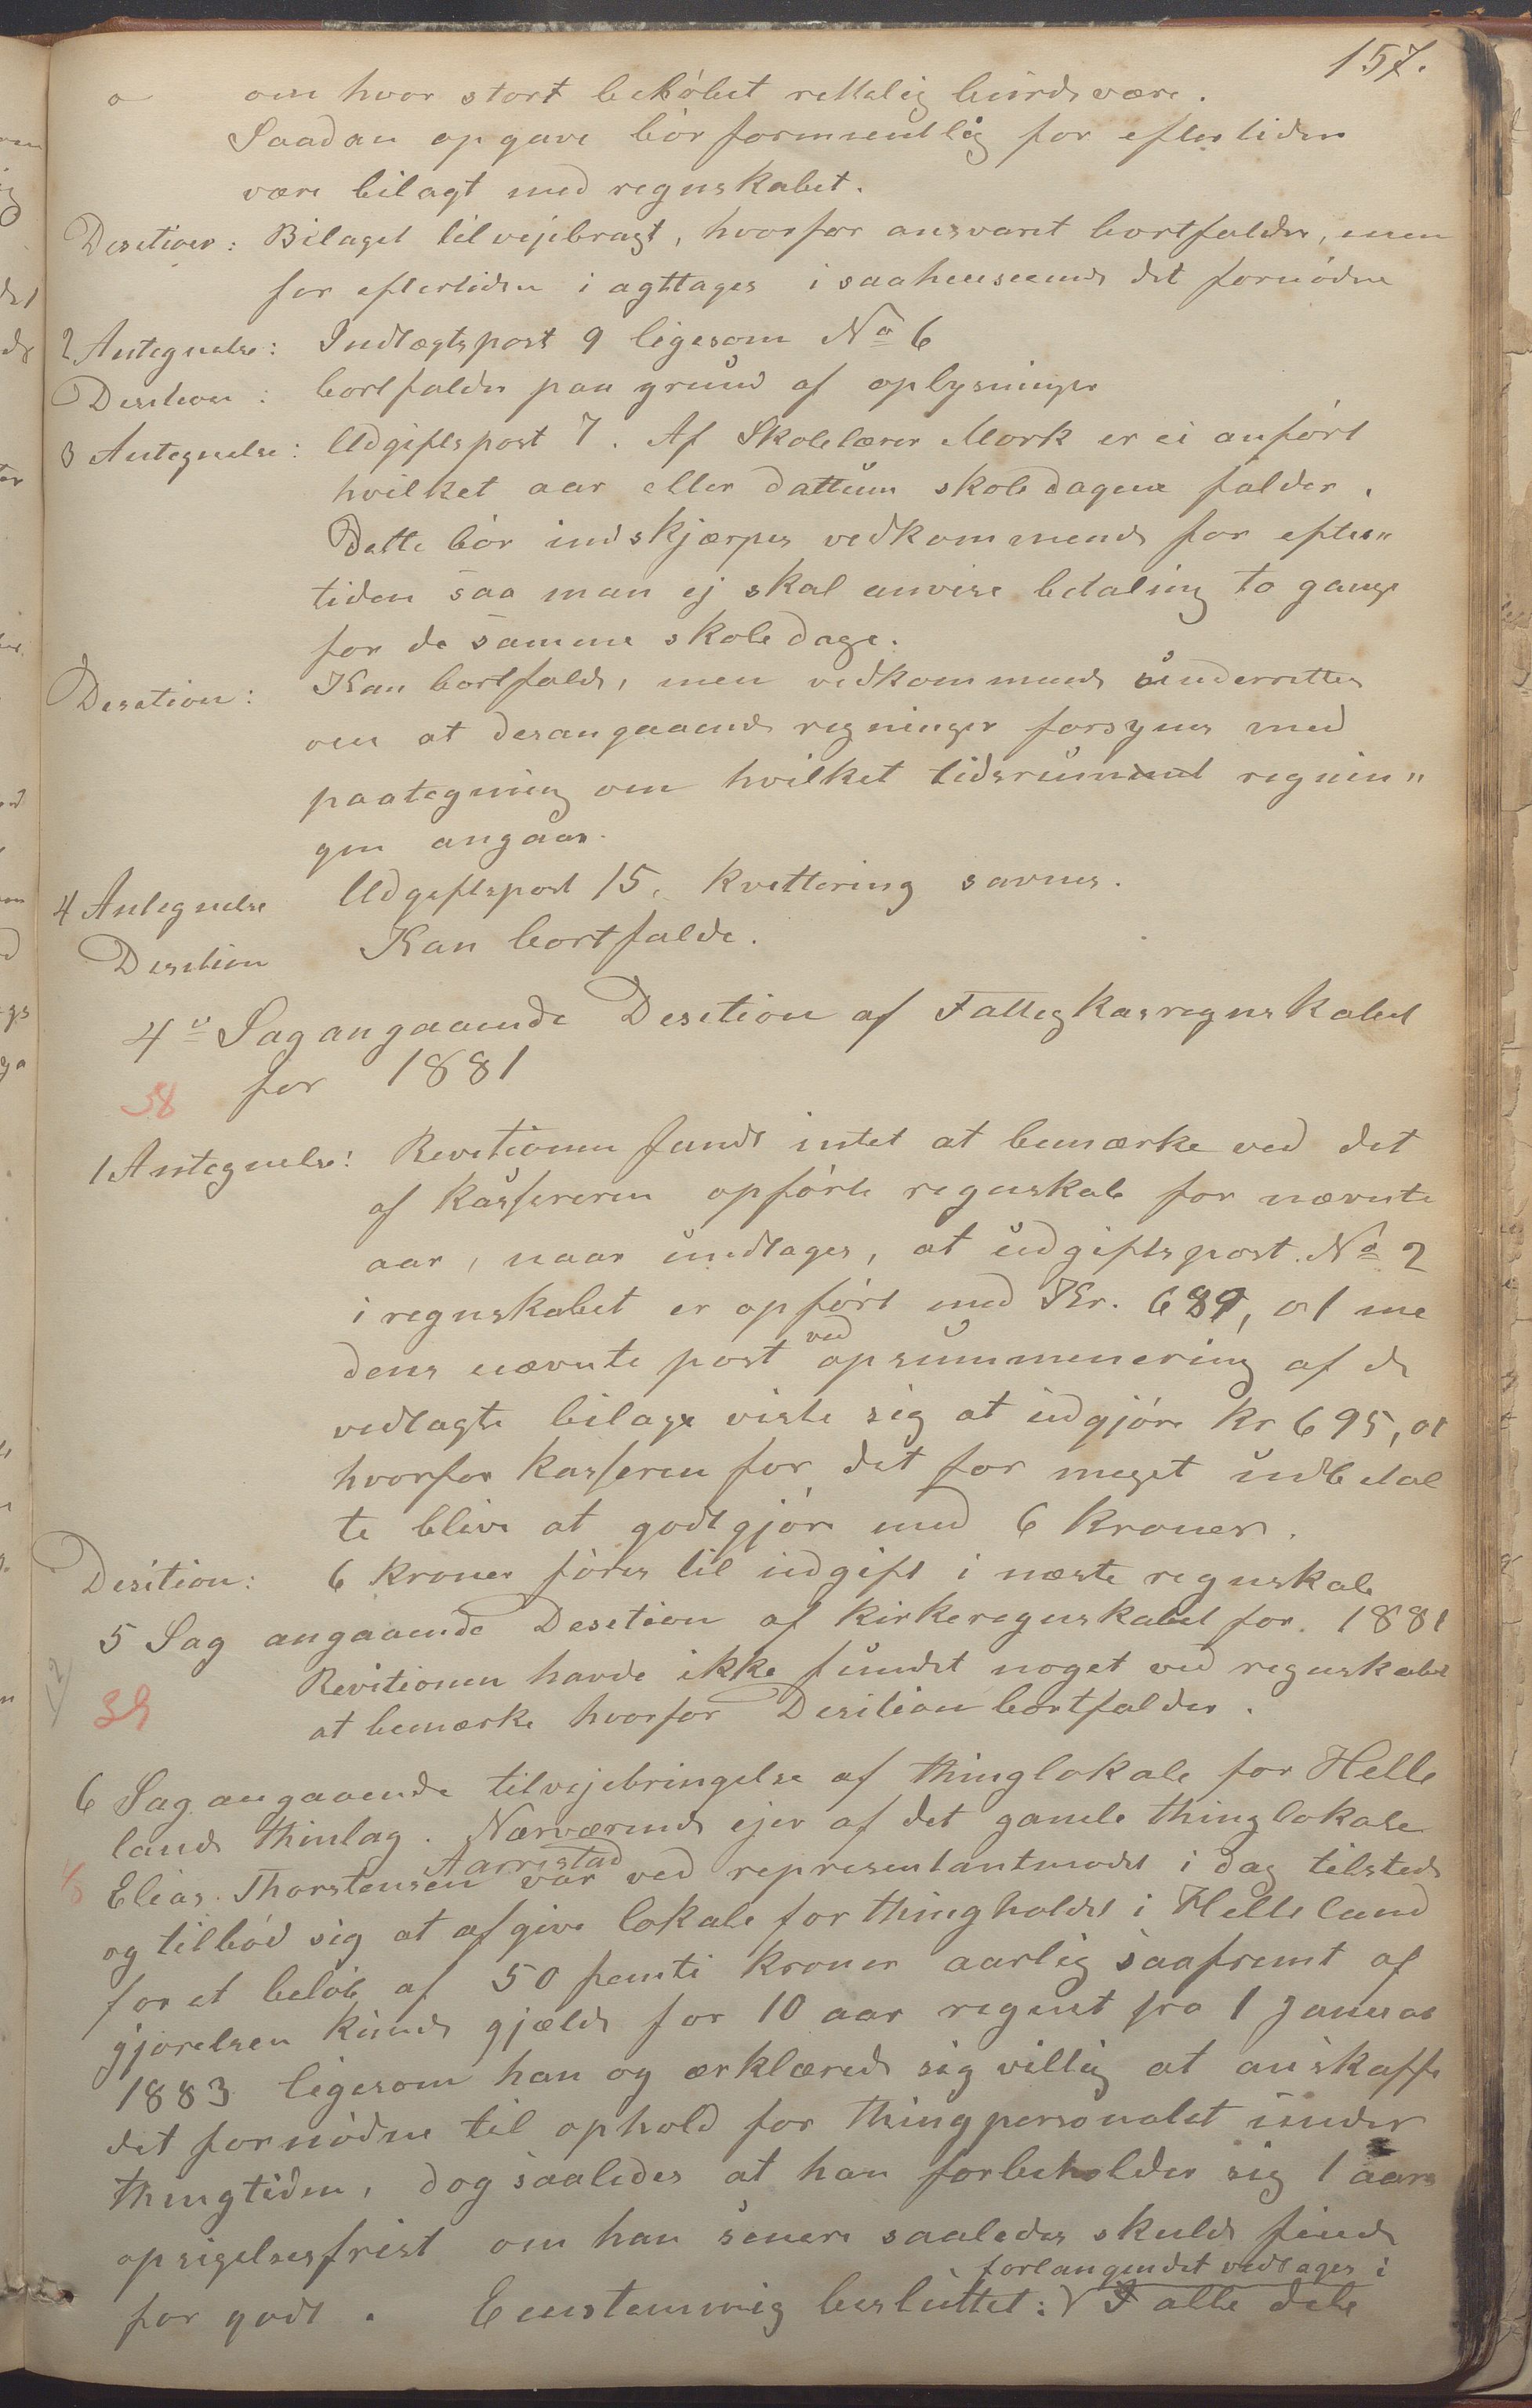 157.
om hvor stort beløbet rettelig burde være.
Saadan opgave bør formentlig for eftertiden
være bilagt med regnskabet.
Desition: Bilaget tilvejebragt, hvorfor ansvaret bortfalder, men
for eftertiden iagttages i saahenseende det fornødne
2 Antegnelse: Indtægtspost 9 ligesom No 6
Desition: bortfalder paa grund af oplysninger
3 Antegnelse: Udgiftspost 7. Af Skolelærer Mork er ei anført
hvilket aar eller dattum skoledagene falder.
Dette bør indskjærpes vedkommende for efter"
tiden saa man ej skal anvise betaling to gange
for de samme skoledage.
Desition: Kan bortfalde, men vedkommende underrettes
om at desangaaende regninger forsynes med
paategning om hvilket tidsrummet regnin"
gen angaar.
4 Antegnelse Udgiftspost 15. kvittering savnes.
Desition Kan bortfalde.
4de Sag angaaende Desition af Fattigkasregnskabet
for 1881
38
1 Antegnelse: Revitionen fandt intet at bemærke ved det
af kassereren opførte regnskab for nævnte
aar, naar undtages, at udgiftspost No 2
i regnskabet er opført med Kr. 689, 01 me
dens nævnte post ved opsummenering af de
vedlagte bilage viste sig at udgjøre Kr 695, 01
hvorfor kasseren for det for meget udbetal
te blive at godtgjøre med 6 kroner.
Desition: 6 kroner føres til udgift i næste regnskab
5 Sag angaaende Desition af kirkeregnskabet for 1881
Revitionen havde ikke fundet noget ved regnskabet
39
at bemærke hvorfor Desition bortfalder.
6 Sag angaaende tilvejebringelse af thinglokale for Helle
lands thinlag. Nærværende ejer af det gamle thinglokale
Elias Thorstensen Aarrestad var ved representantmødet i dag tilstede
og tilbød sig at afgive lokale for thingholdet i Helleland
for et beløb af 50 femti kroner aarlig saafremt af
gjørelsen kunde gjælde for 10 aar regnet fra 1 Januar
1883 ligesom han og erklærede sig villig at anskaffe
det fornødne til ophold for thingpersonalet under
thingtiden, dog saaledes at han forbeholder sig 1 aars
opsigelsesfrist om han senere saaledes skulde finde
forlangendet vedtages i
for godt. Eenstemmig besluttet: I alle dele